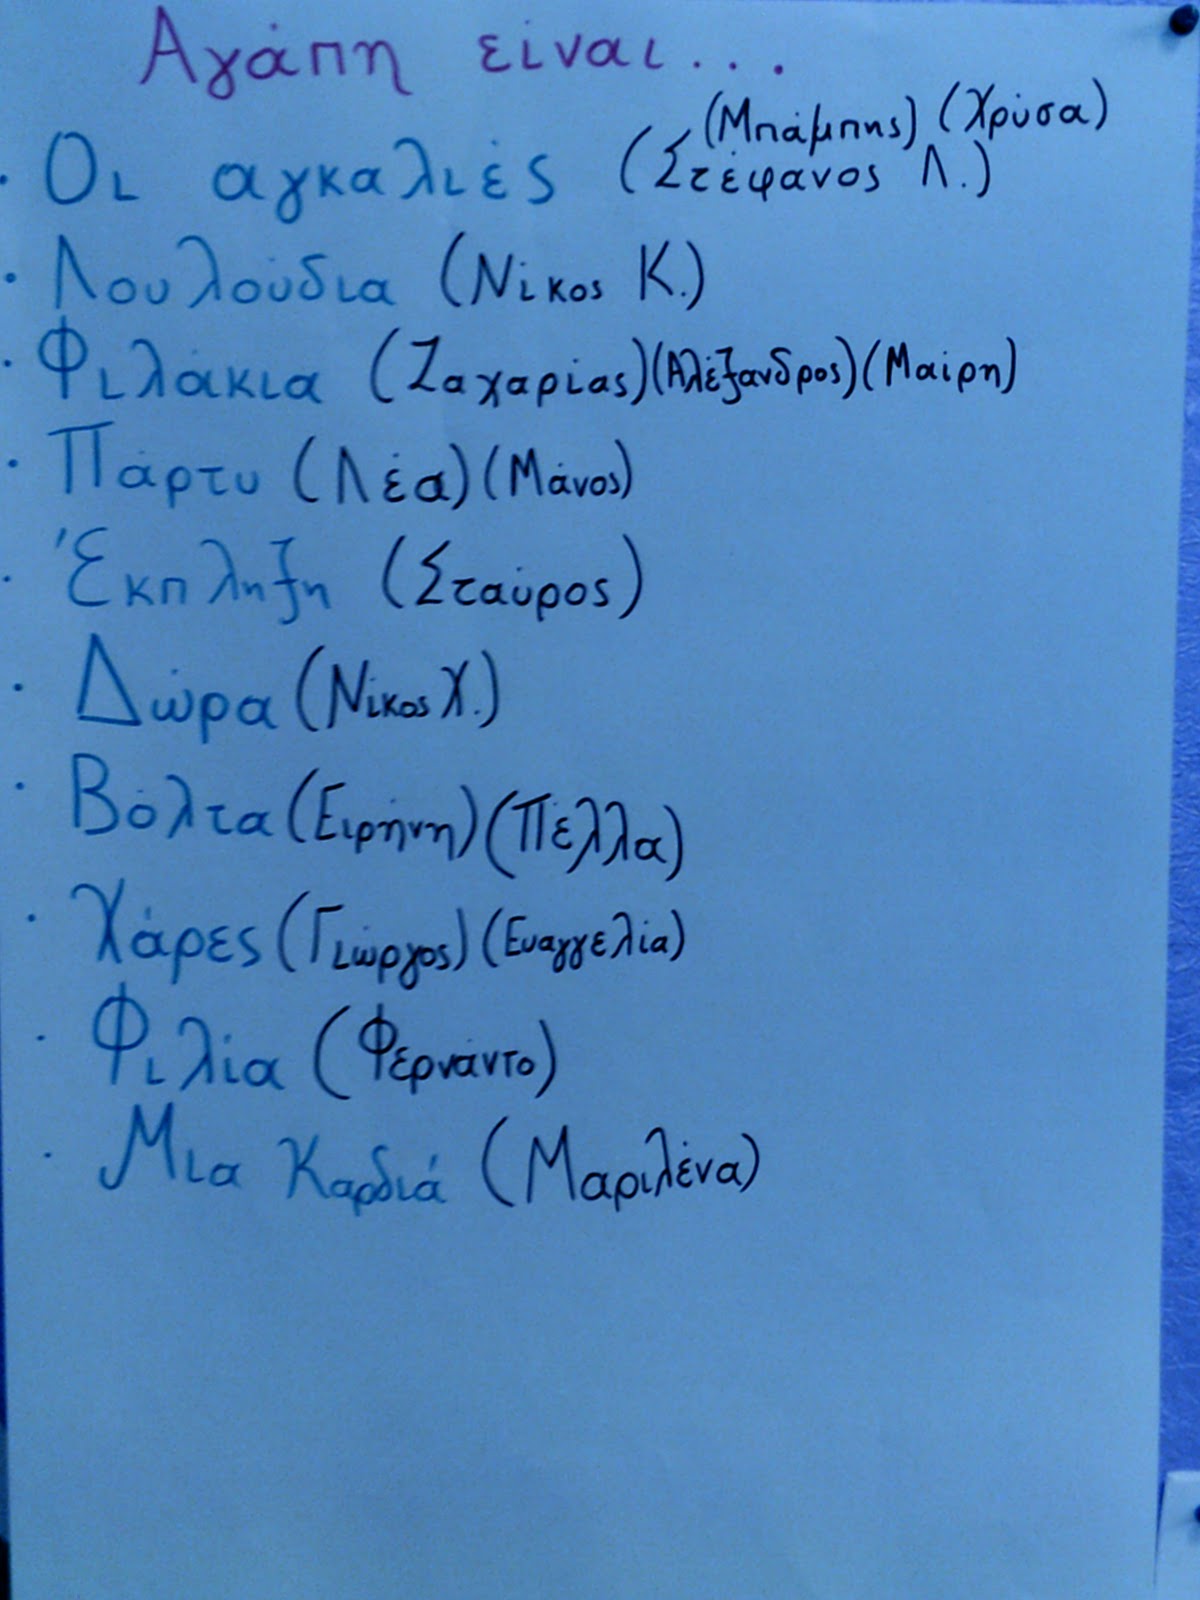 Αγάπη είναι...
(Μπάμπης) (Χρύσα)
· Οι αγκαλιές (Στέφανος Λ.)
· Λουλούδια (Νίκος Κ.)
· Φιλάκια (Ζαχαρίας)(Αλέξανδρος)(Μαίρη)
· Πάρτυ (Λέα)(Μάνος)
· Έκπληξη (Σταύρος)
· Δώρα (Νίκος Χ.)
· Βόλτα (Ειρήνη)(Πέλλα)
· Χάρες (Γιώργος)(Ευαγγελία)
· Φιλία (Φερνάντο)
· Μια Καρδιά (Μαριλένα)